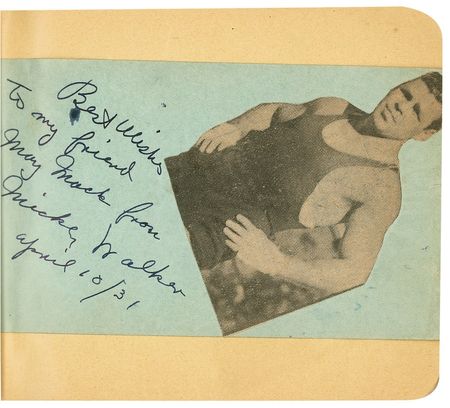 Best Wishes
To my friend
May Mack from
Mickey Walker
april 10/31